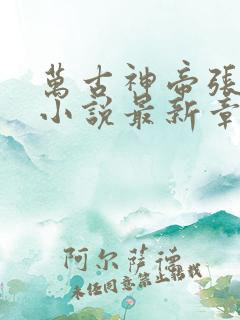 萬古神帝張
小說最新章
阿尔萨德
未经同意禁止转载